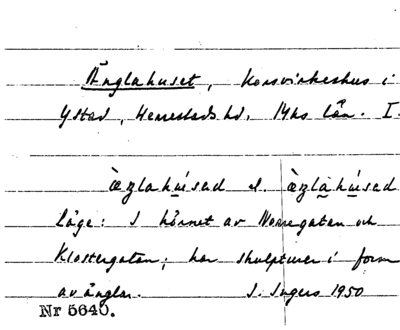 Änglahuset, Korsvirkeshus i
Ystad, Herrestads hd, Mhs län. I.
æŋlahúsəd el. æŋlahúsəd
Läge: I hörnet av Norregatan och
Klostergatan; har skulpturer i form
av änglar. I. Ingers 1950
Nr 5640.